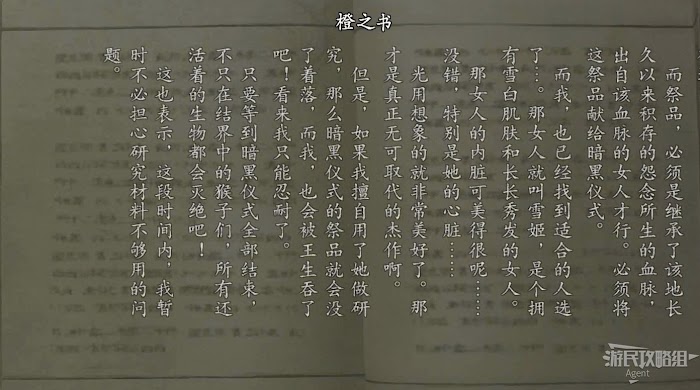 橙之书
而祭品，必须是继承了该地长
久以来积存的怨念所生的血脉，
出自该血脉的女人才行。必须将
这祭品献给暗黑仪式。
而我，也已经找到适合的人选
了…。那女人就叫雪姬，是个拥
有雪白肌肤和长长秀发的女人。
那女人的内脏可美得很呢……
没错，特别是她的心脏……
光用想象的就非常美好了。那
才是真正无可取代的杰作啊。
但是，如果我擅自用了她做研
究，那么暗黑仪式的祭品就会没
了着落，而我，也会被王生吞了
吧！看来我只能忍耐了。
只要等到暗黑仪式全部结束，
不只在结界中的猴子们，所有还
活着的生物都会灭绝吧！
这也表示，这段时间内，我暂
时不必担心研究材料不够用的问
题。
游民攻略组
Agent